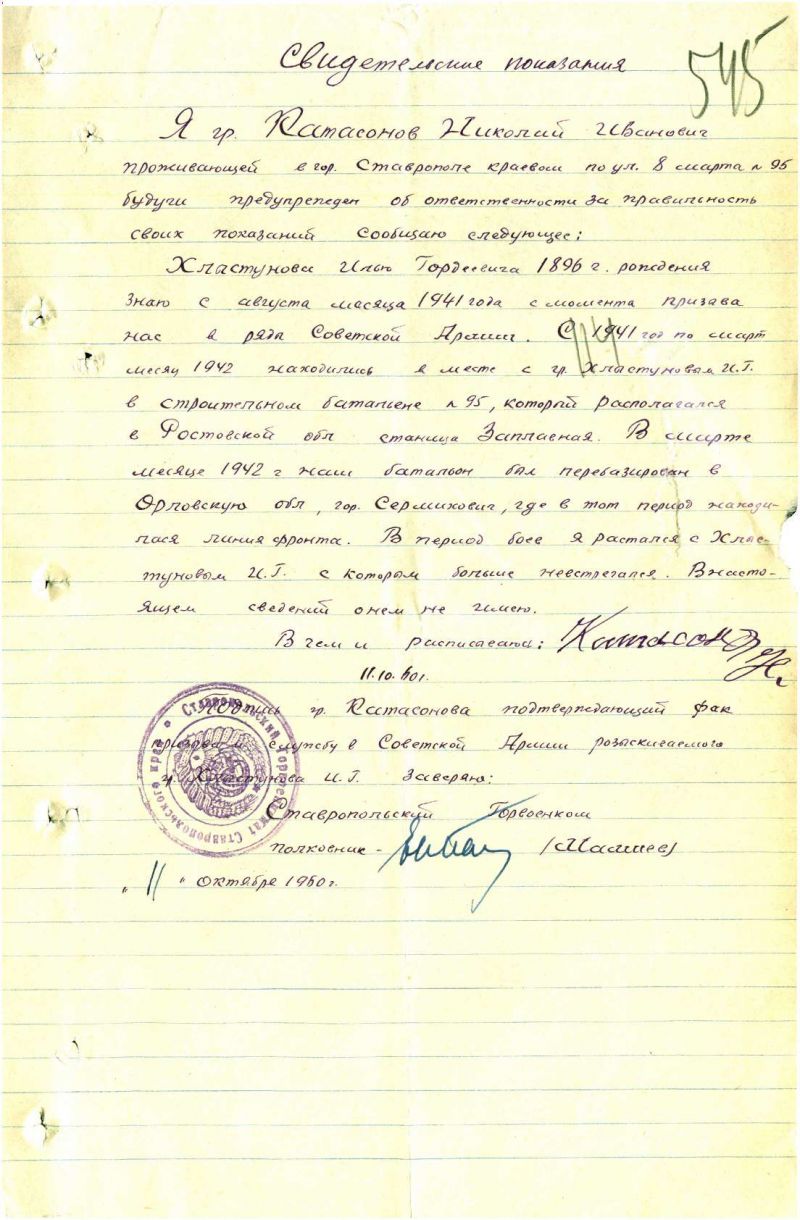 Свидетельские показания
545
Я гр. Катасонов Николай Иванович
проживающей в гор. Ставрополе краевом по ул. 8 марта № 95
будучи предупрежден об ответственности за правильность
своих показаний сообщаю следующее:
Хластунова Илью Гордеевича 1896 г. рождения
знаю с августа месяца 1941 года с момента призава
нас в ряды Советской Армии. С 1941 год по март
114
месяц 1942 находились в месте с гр. Хластуновым И.Г.
в строительном батальене № 95, который располагался
в Ростовской обл станица Заплавная. В марте
месяце 1942 г наш батальон был перебазирован в
Орловскую обл, гор. Сермикович, где в тот период находи-
лася линия фронта. В период боев я растался с Хлас-
туновым И.Г. с которым больше невстречался. Внасто-
ящем сведений онем не имею.
В чем и расписываюсь: Катасонов
11.10.60г.
Подпись гр. Катасонова подтверждающий фак
призыва и службу в Советской Армии розыскиваемого
гр. Хластунова И.Г. Заверяю:
Ставропольский Горвоенком
полковник - (Малшев)
"11" октября 1960 г.
Ставропольский Горвоенкомат Ставропольского края